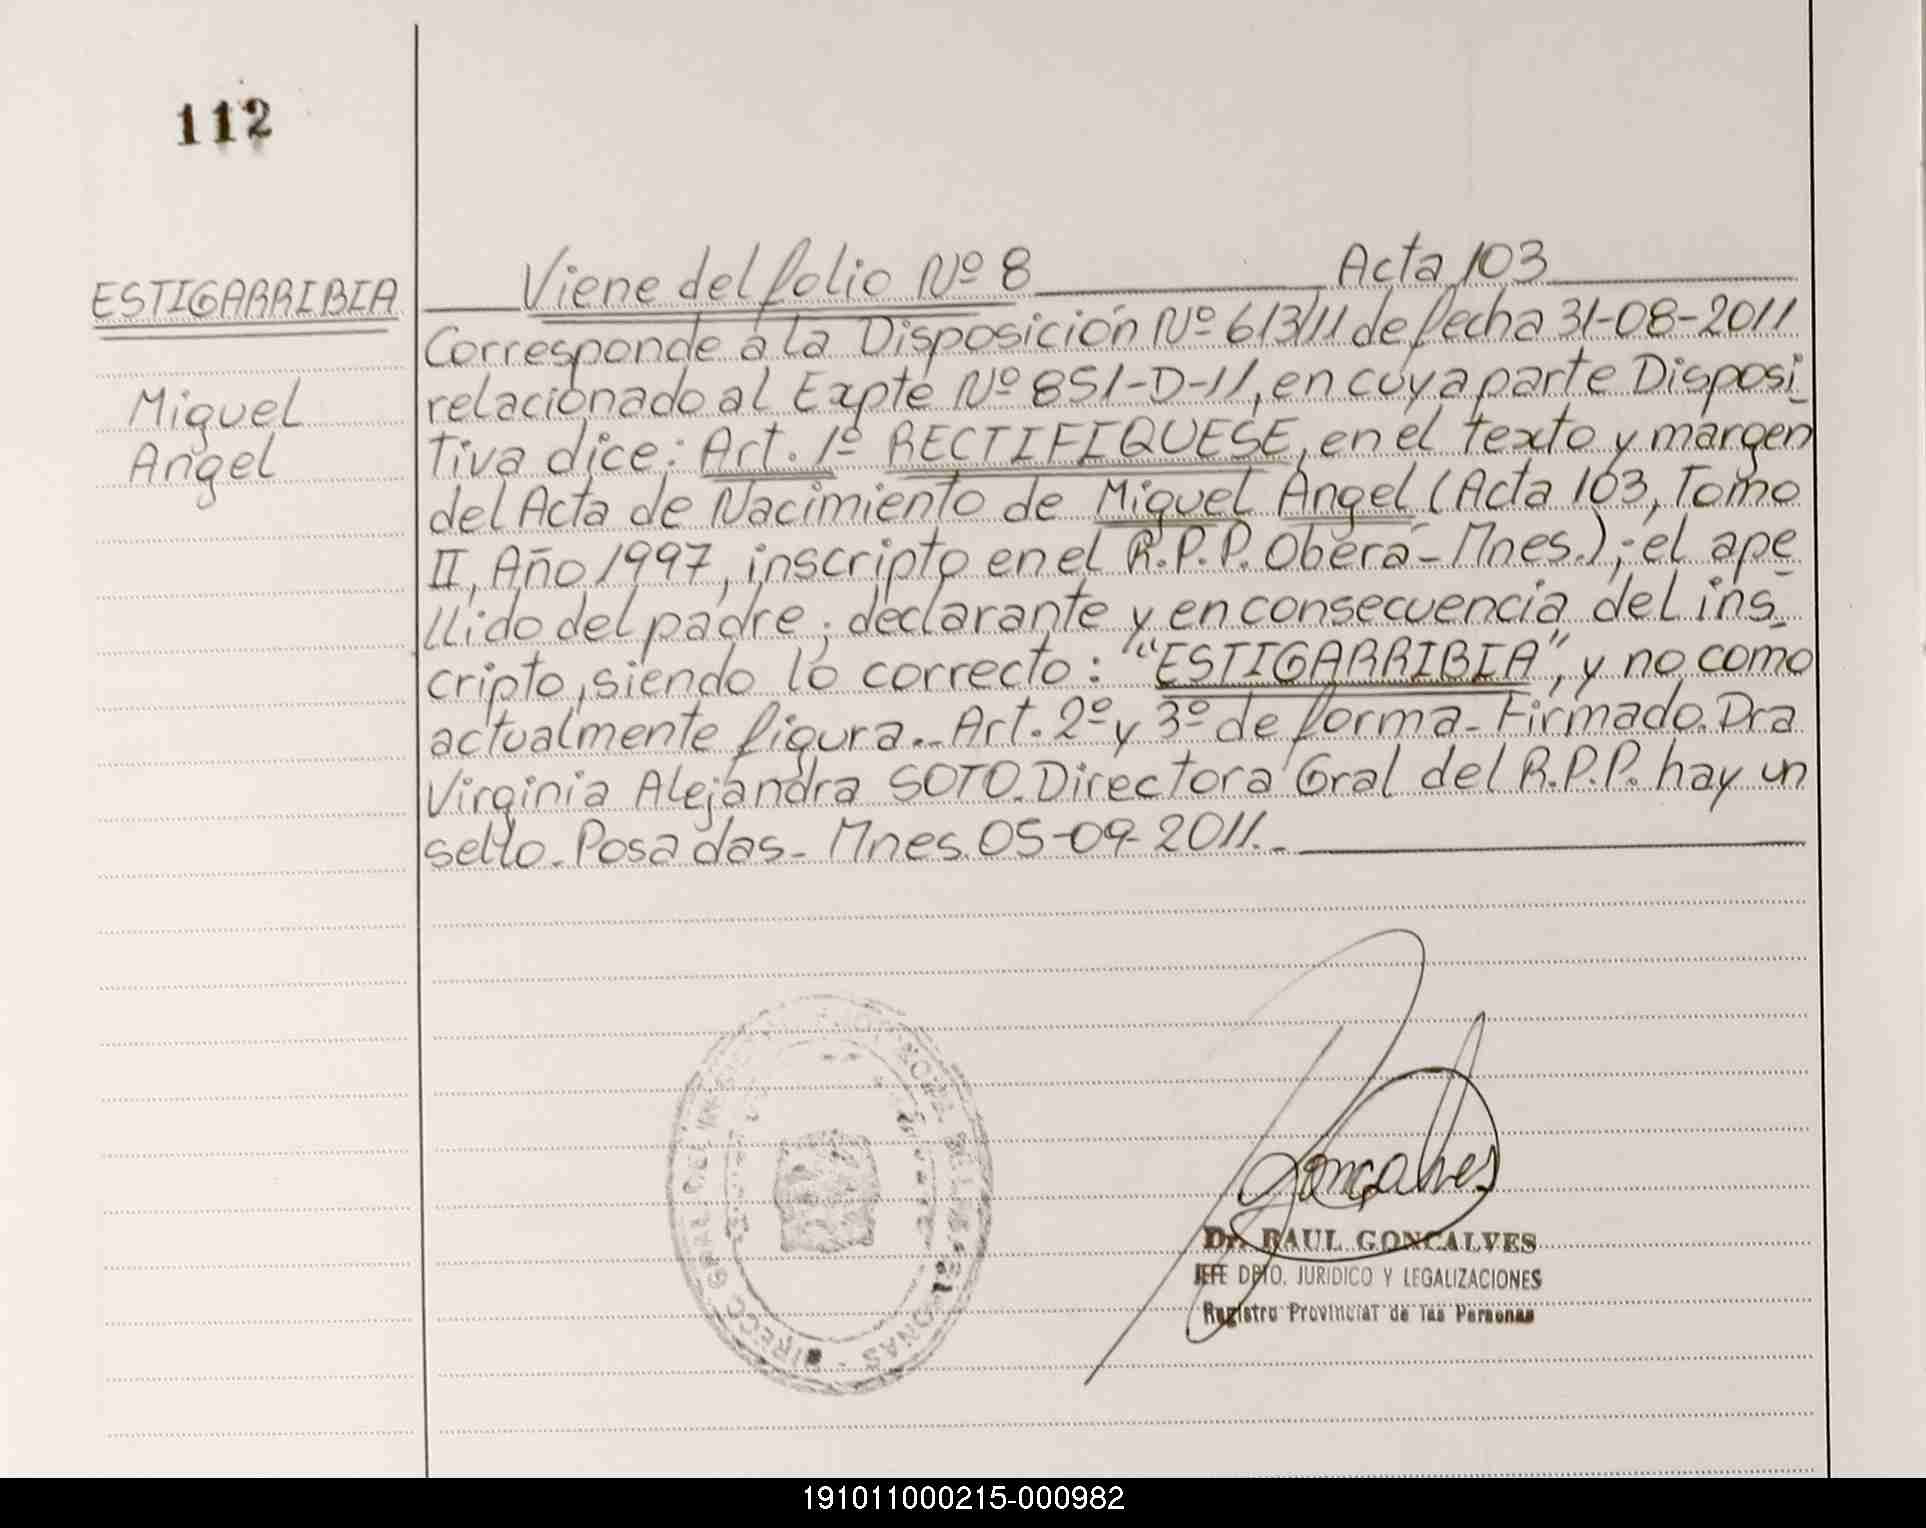 112
ESTIGARRIBIA
Miguel
Angel
Viene del folio Nº 8 Acta 103
Corresponde a la Disposición Nº 613/11 de fecha 31-08-2011
relacionado al Expte Nº 851-D-11, en cuya parte Disposi
tiva dice: Art. 1º RECTIFIQUESE, en el texto y margen
del Acta de Nacimiento de Miguel Angel (Acta 103, Tomo
II, Año 1997, inscripto en el R.P.P. Oberá - Mnes.); el ape
llido del padre; declarante y en consecuencia del ins
cripto, siendo lo correcto: "ESTIGARRIBIA", y no como
actualmente figura.- Art. 2º y 3º de forma - Firmado. Dra
Virginia Alejandra SOTO. Directora Gral del R.P.P. hay un
sello - Posadas - Mnes. 05-09-2011.-
Goncalves
Dr. RAUL GONCALVES
JEFE DPTO. JURIDICO Y LEGALIZACIONES
Registro Provincial de las Personas
191011000215-000982